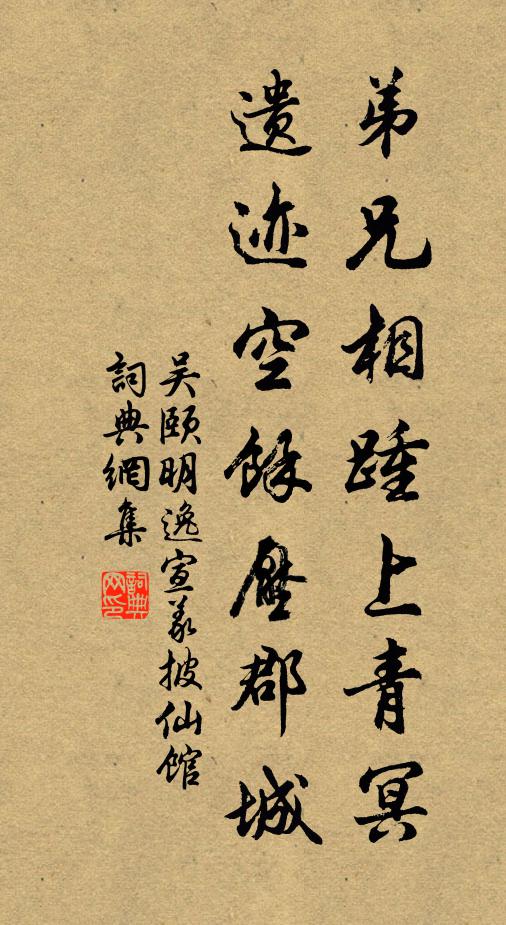 弟兄相踵上青冥
遗迹空餘压郡城
吴颐明逸宣义披仙馆
詞典網集
詞典网印